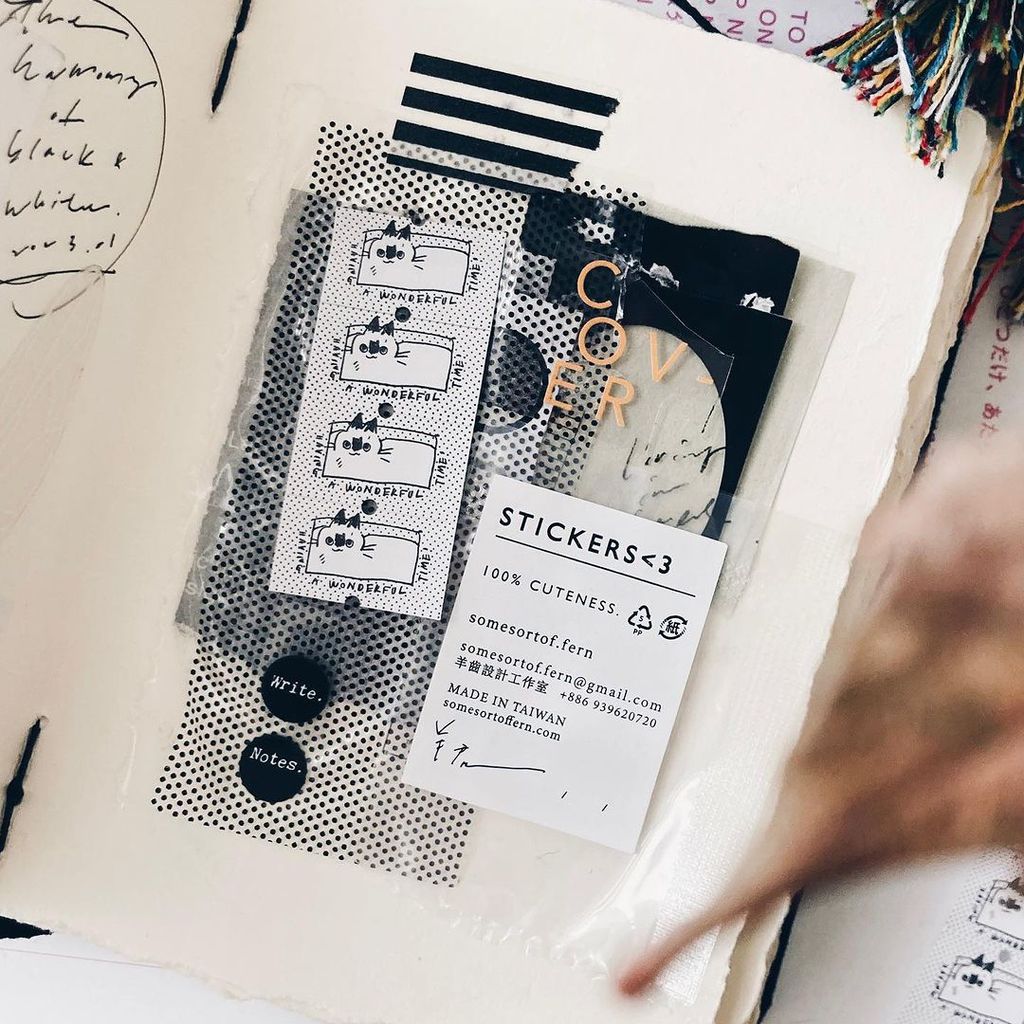 The
harmony
of
black &
white.
TO
ON
HAVING
A WONDERFUL
TIME!
HAVING
A WONDERFUL
TIME!
HAVING
A WONDERFUL
TIME!
HAVING
A WONDERFUL
TIME!
COVER
OV
living
in
STICKERS<3
100% CUTENESS.
5
PP
紙
somesortof.fern
somesortof.fern@gmail.com
羊齒設計工作室 +886 939620720
MADE IN TAIWAN
somesortoffern.com
Write.
Notes.